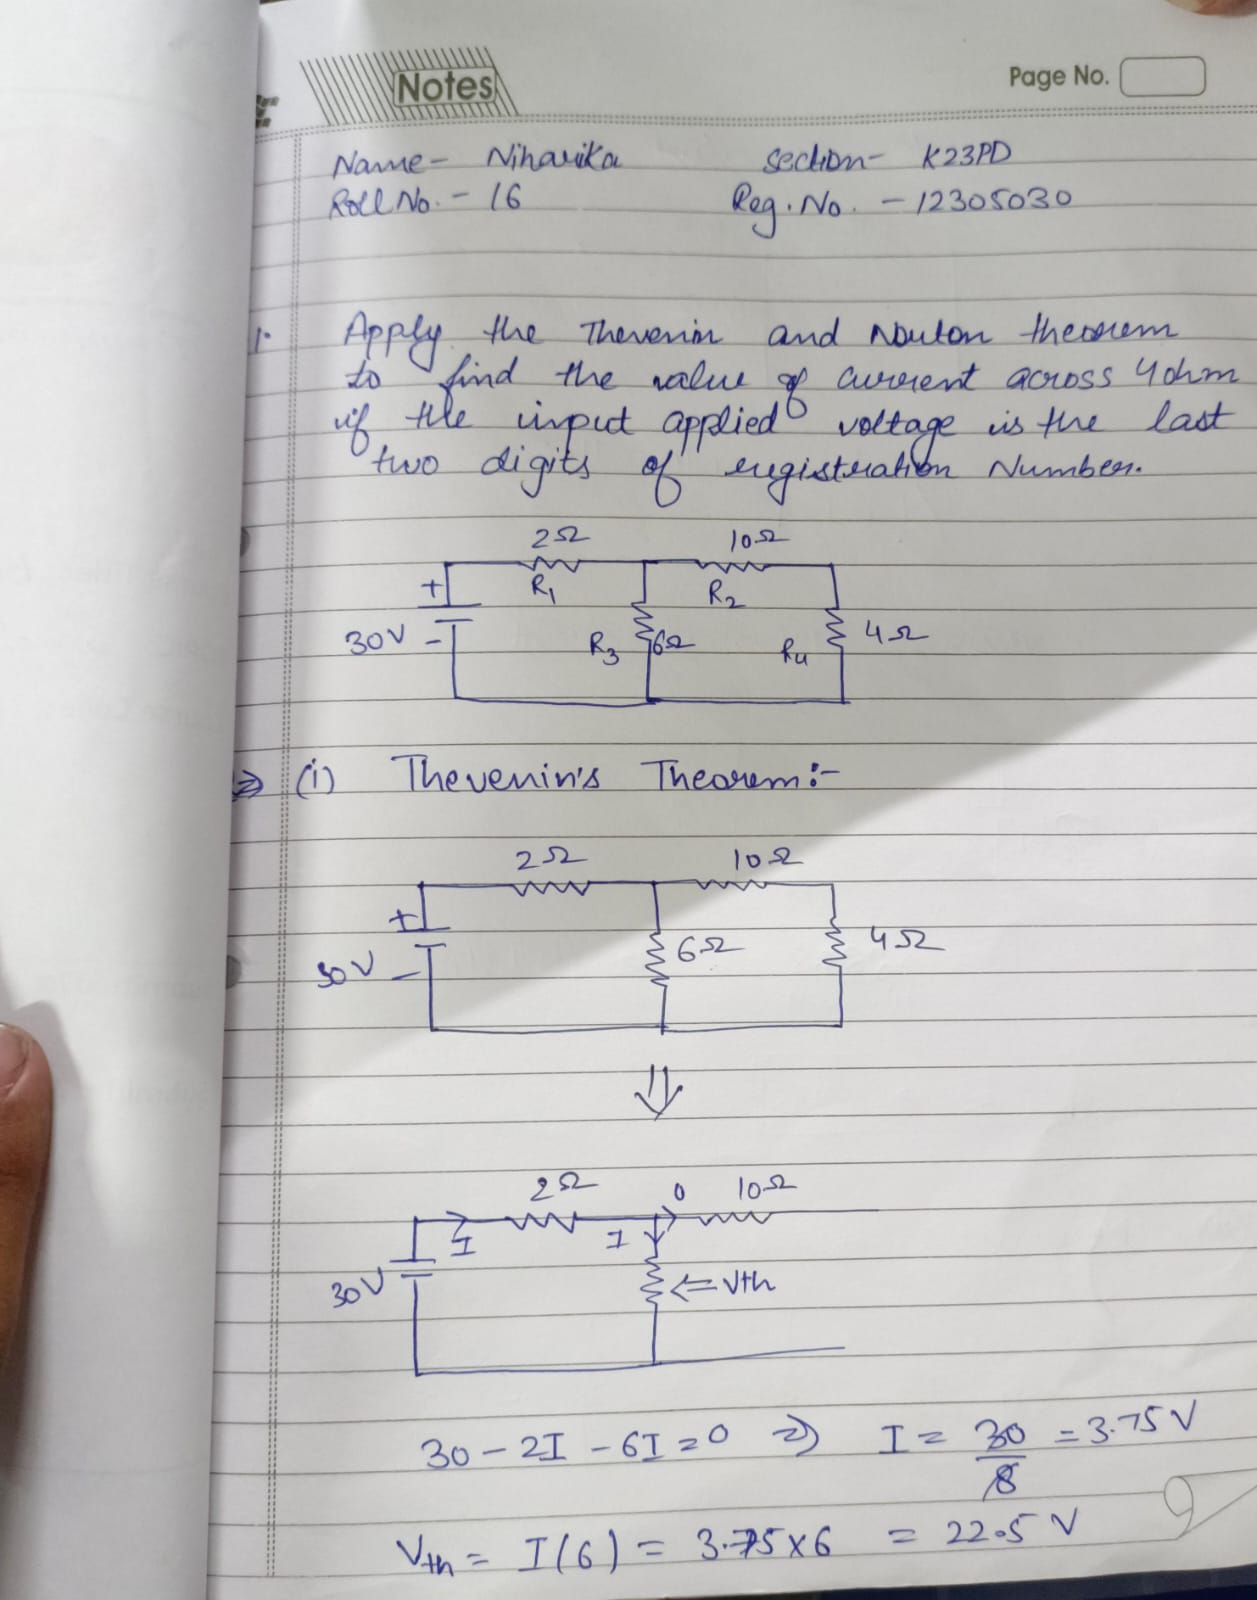 Notes
Page No.
Name- Niharika Section- K23PD
Roll No. - 16 Reg. No. - 12305030
1. Apply the Thevenin and Nouton theorem
to find the value of current across 4ohm
if the input applied voltage is the last
two digits of registration Number.
2Ω 10Ω
+ R1 R2
30V - R3 6Ω R4 4Ω
⇒ (i) Thevenin's Theorem:-
2Ω 10Ω
+
30V - 6Ω 4Ω
⇓
2Ω 0 10Ω
I I
30V ⇐ Vth
30 - 2I - 6I = 0 ⇒ I = 30/8 = 3.75 V
Vth = I(6) = 3.75 × 6 = 22.5 V